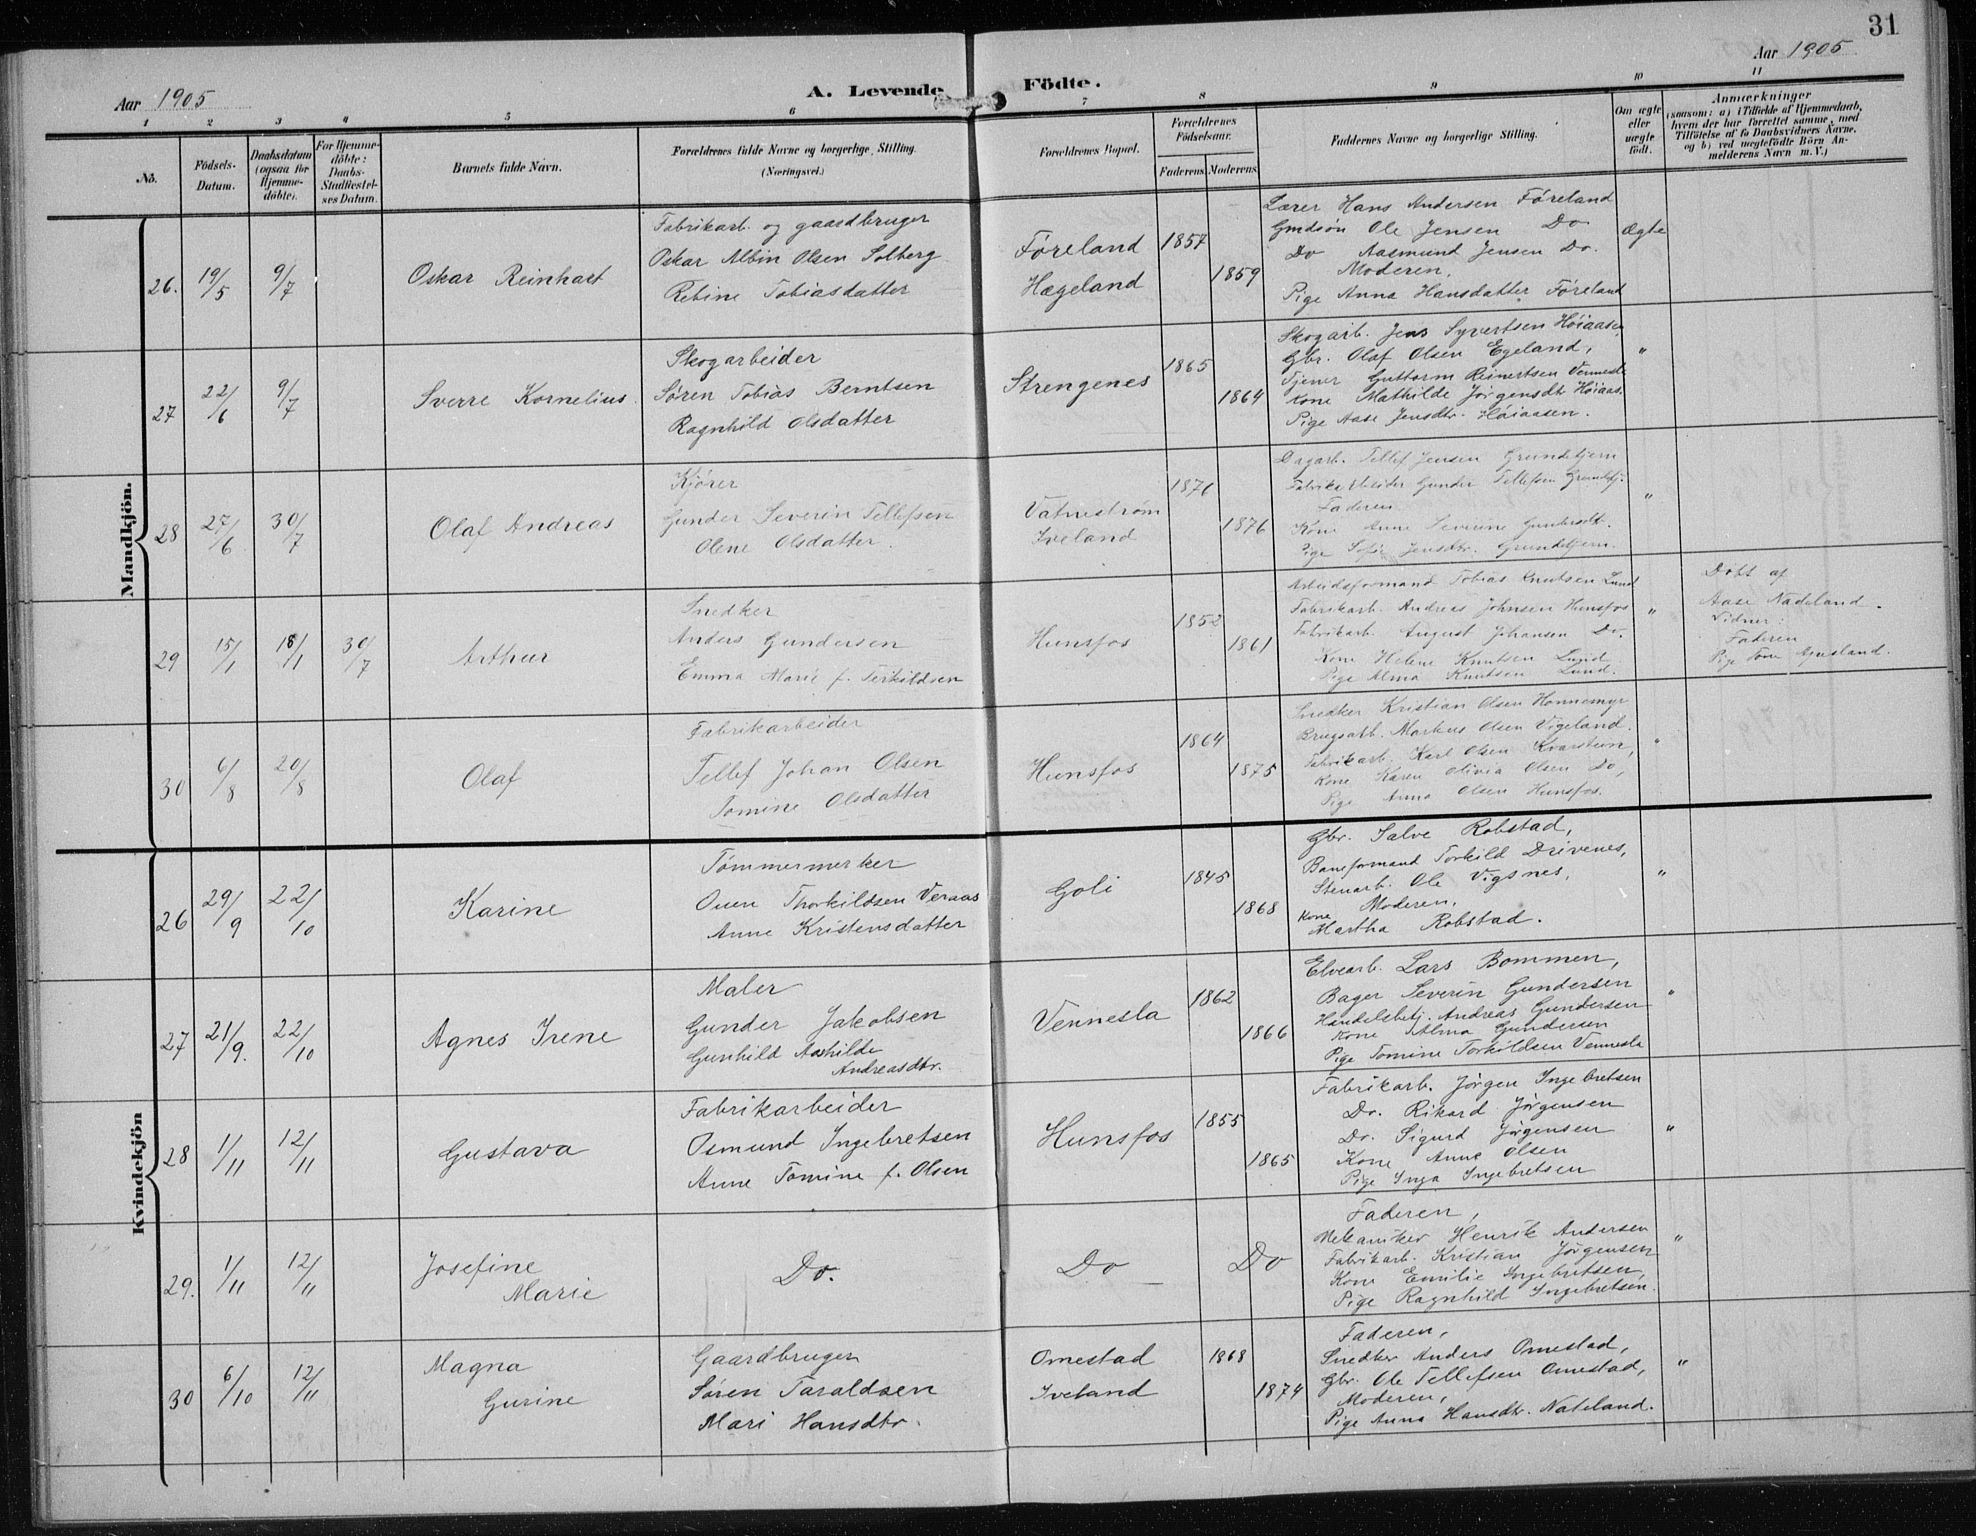 31
Aar 1905
A. Levende Födte.
Aar 1905
1 2 3 4 5 6 7 8 9 10 11
No.
Födsels-Datum.
Daabsdatum (ogsaa for Hjemme-döbte).
For Hjemme-döbte: Daabs-Stadfæstel-ses Datum.
Barnets fulde Navn.
Forældrenes fulde Navne og borgerlige Stilling. (Næringsvei.)
Forældrenes Bopæl.
Forældrenes Födselsaar.
Faderens Moderens
Faddernes Navne og borgerlige Stilling.
Om ægte eller uægte født.
Anmærkninger
(saasom: a) i Tilfælde af Hjemmedaab,
hvem der har forrettet samme, med
Tilföielse af to Daabsvidners Navne.
og b) ved uægtefödte Börn An-
melderens Navn m. V.)
Mandkjön.
26. 19/5 9/7
Oskar Reinhart
Fabrikarb. og gaardbruger
Oskar Albin Olsen Solberg
Rebine Tobiasdatter
Føreland
Hægeland
1857
1859
Lærer Hans Andersen Føreland
Gmdsøn Ole Jensen Do
Do Aasmund Jensen Do.
Moderen,
Pige Anna Hansdatter Føreland
Ægte
27 22/6 9/7
Sverre Kornelius.
Skogarbeider
Søren Tobias Berntsen
Ragnhild Olsdatter
Strengenes
1865
1864
Skogarb. Jens Syvertsen Høiaasen
Gbr. Olaf Olsen Egeland,
Tjener Guttorm Reinertsen Vennesla
Kone Mathilde Jørgensdtr Høiaas.
Pige Aase Jensdtr. Høiaasen.
"
28 27/6 30/7
Olaf Andreas
Kjører
Gunder Severin Tellefsen
Olene Olsdatter.
Vatnestrøm
Iveland
1876
1876
Dagarb. Tellef Jensen Grundetjern
Fabrikarbeider Gunder Tellefsen Grundetj.
Faderen
Kone Anne Severine Gundersdt.
Pige Sofie Jensdtr. Grundetjern.
"
29 15/1 18/1 30/7
Arthur
Snedker
Anders Gundersen
Emma Marie f. Terkildsen
Hunsfos
1852
1861
Arbeidsformand Tobias Knutsen Lund
Fabrikarb. Andreas Johnsen Hunsfos
Fabrikarb. August Johansen Do.
Kone Helene Knutsen Lund
Pige Alma Knutsen Lund.
"
Døbt af
Aase Nadeland.
Vidner:
Faderen
Pige Tone
30 6/8 20/8
Olaf
Fabrikarbeider
Tellef Johan Olsen
Tomine Olsdatter
Hunsfos
1864
1875
Snedker Kristian Olsen Honnemyr
Brugsarb. Markus Olsen Vigeland.
Fabrikarb. Karl Olsen Kvarstein,
Kone Karen Olivia Olsen Do,
Pige Anna Olsen Hunsfos.
"
Kvindekjön
26 29/9 22/10
Karine
Tømmermerker
Ouen Thorkildsen Veraas
Anne Kristensdatter
Goli
1845
1868
Gbr. Salve Robstad,
Baneformand Torkild Drivenes,
Stenarb. Ole Vigsnes,
Moderen,
Kone Martha Robstad.
"
27 21/9. 22/10
Agnes Irene
Maler
Gunder Jakobsen
Gunhild Aashilde
Andreasdtr.
Vennesla
1862
1866
Elvearb. Lars Bommen,
Bager Severin Gundersen
Handelsbetj. Andreas Gundersen
Kone Alma Gundersen
Pige Tomine Torkildsen Vennesla
"
28 1/11 12/11
Gustava
Fabrikarbeider
Osmund Ingebretsen
Anne Tomine f. Olsen
Hunsfos
1855
1865
Fabrikarb. Jørgen Ingebretsen
Do. Rikard Jørgensen
Do. Sigurd Jørgensen
Kone Anne Olsen
Pige Inga Ingebretsen
"
29. 1/11 12/11
Josefine
Marie
Do.
Do
Do
Faderen,
Mekaniker Henrik Andersen
Fabrikarb. Kristian Jørgensen
Kone Emilie Ingebretsen,
Pige Ragnhild Ingebretsen.
"
30 6/10 12/11
Magna
Gurine
Gaardbruger
Søren Taraldsen
Mari Hansdtr.
Omestad
Iveland
1868
1874
Faderen,
Snedker Anders Omestad,
Gbr. Ole Tellefsen Omestad,
Moderen,
Pige Anna Hansdtr. Nateland.
"